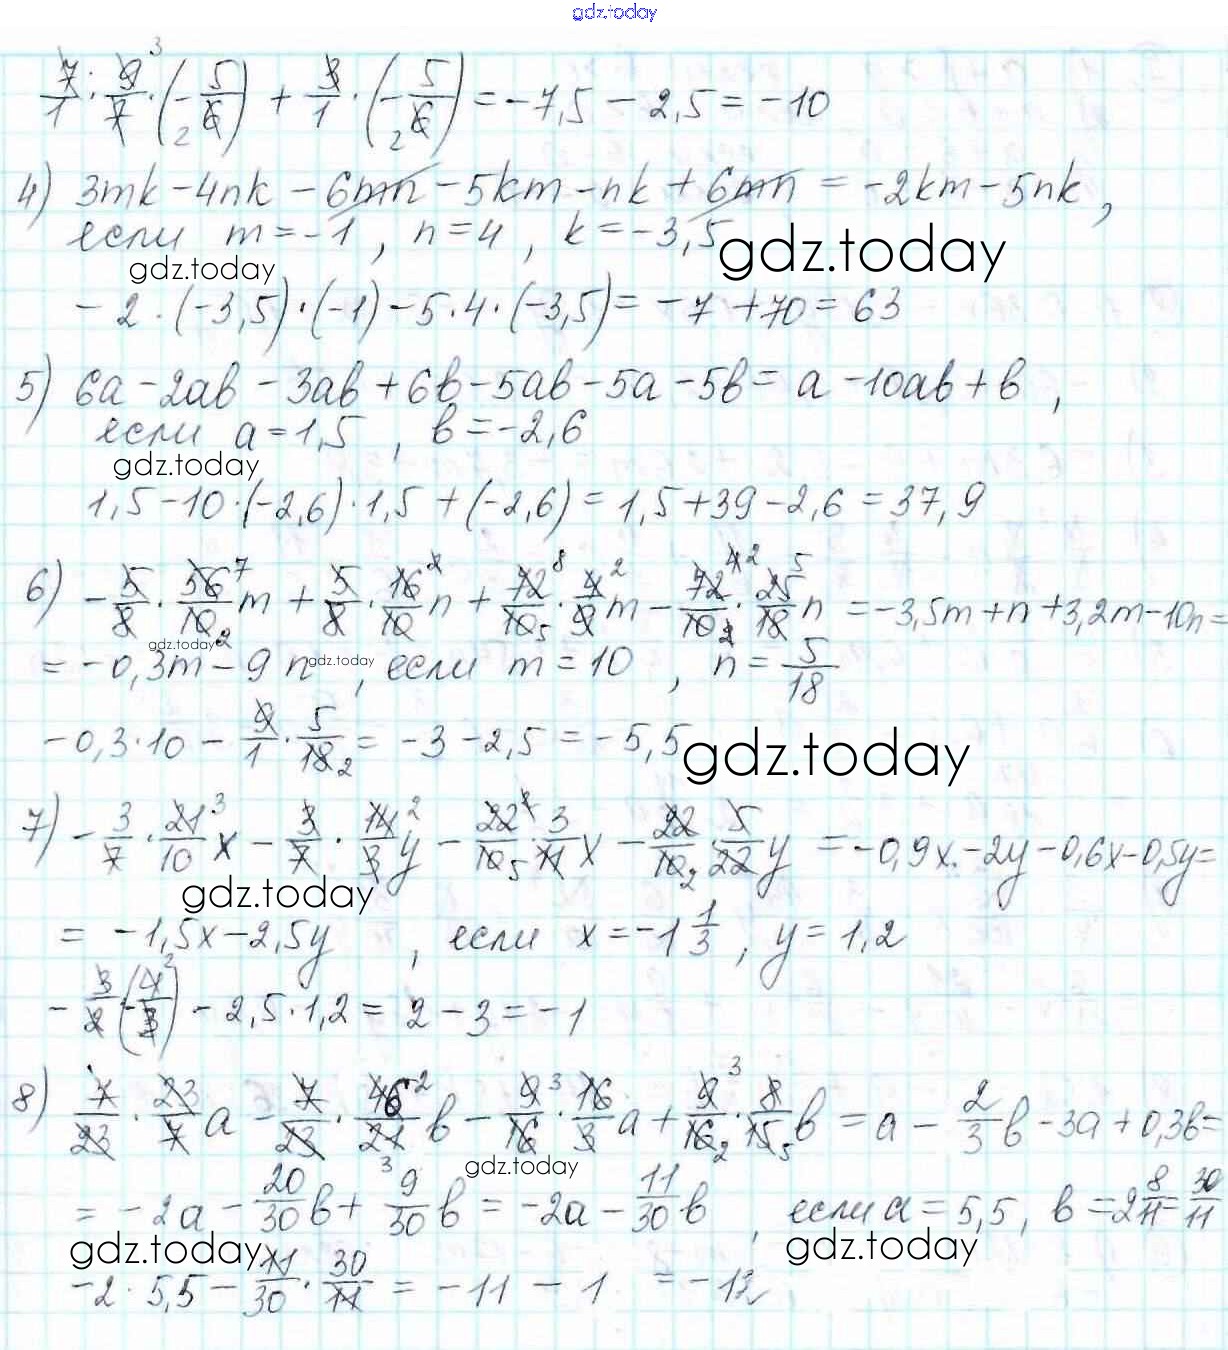 gdz.today
7/1 : 9/7 · (-5/6) + 3/1 · (-5/6) = -7,5 - 2,5 = -10
4) 3mk - 4nk - 6mn - 5km - nk + 6mn = -2km - 5nk,
если m = -1, n = 4, k = -3,5
gdz.today gdz.today
-2 · (-3,5) · (-1) - 5 · 4 · (-3,5) = -7 + 70 = 63
5) 6a - 2ab - 3ab + 6b - 5ab - 5a - 5b = a - 10ab + b,
если a = 1,5, b = -2,6
gdz.today
1,5 - 10 · (-2,6) · 1,5 + (-2,6) = 1,5 + 39 - 2,6 = 37,9
6) -5/8 · 56/10 m + 5/8 · 16/10 n + 72/10 · 4/9 m - 72/10 · 25/18 n = -3,5m + n + 3,2m - 10n =
gdz.today gdz.today
= -0,3m - 9n, если m = 10, n = 5/18
-0,3 · 10 - 9/1 · 5/18 = -3 - 2,5 = -5,5
gdz.today
7) -3/7 · 21/10 x - 3/7 · 14/3 y - 22/10 · 3/11 x - 22/10 · 5/22 y = -0,9x - 2y - 0,6x - 0,5y =
gdz.today
= -1,5x - 2,5y, если x = -1 1/3, y = 1,2
-3/2 (-4/3) - 2,5 · 1,2 = 2 - 3 = -1
8) 7/23 · 23/7 a - 7/23 · 46/21 b - 9/16 · 16/3 a + 9/16 · 8/15 b = a - 2/3 b - 3a + 0,3b =
gdz.today
= -2a - 20/30 b + 9/30 b = -2a - 11/30 b, если a = 5,5, b = 2 8/11 = 30/11
gdz.today gdz.today
-2 · 5,5 - 11/30 · 30/11 = -11 - 1 = -12